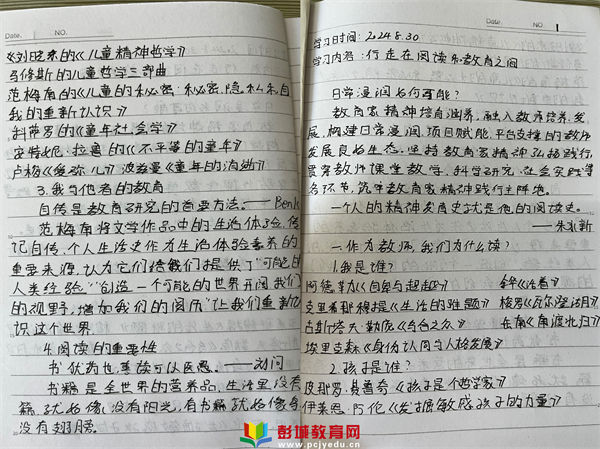 Date. NO.
《刘晓东的《儿童精神哲学》
马修斯的儿童哲学三部曲
范梅南的《儿童的秘密:秘密、隐私和自
我的重新认识》
科萨罗的《童年社会学》
安妮特·拉鲁的《不平等的童年》
卢梭《爱弥儿》 波兹曼《童年的消逝》
3.我与他者的教育
自传是教育研究的首要方法。——Benk
范梅南将文学作品中的生活体验、传
记自传、个人生活史作为生活体验素养的
重要来源,认为它们给我们提供了"可能的
人类经验""创造一个可能的世界开阔我们
的视野,增加我们的阅历"让我们重新认
识这个世界。
4.阅读的重要性
书犹药也,善读可以医愚。——刘向
书籍是全世界的营养品,生活里没有
籍,就好像没有阳光,有书籍就好像
没有翅膀。
Date. NO. 1
学习时间:2024.8.30
学习内容:行走在阅读和教育之间
日常漫润如何可能?
教育家精神培育涵养,融入教师培养、发
展,构建日常漫润、项目赋能、平台支撑的教师
发展良好生态。坚持教育家精神弘扬践行,
贯穿教师课堂教学、科学研究、社会实践等
各环节,筑牢教育家精神践行主阵地。
一个人的精神发育史就是他的阅读史。
——朱永新
一.作为教师,我们为什么读?
1.我是谁?
阿德勒《自卑与超越》 余华《活着》
克里希那穆提《生活的难题》 梭罗《瓦尔登湖》
古斯塔夫·勒庞《乌合之众》 岳南《南渡北归》
埃里克森《身份认同与人格发展》
2.孩子是谁?
皮耶罗·费鲁奇《孩子是个哲学家》
伊莱恩·阿伦《发掘敏感孩子的力量》
彭城教育网
www.pcjyedu.cn